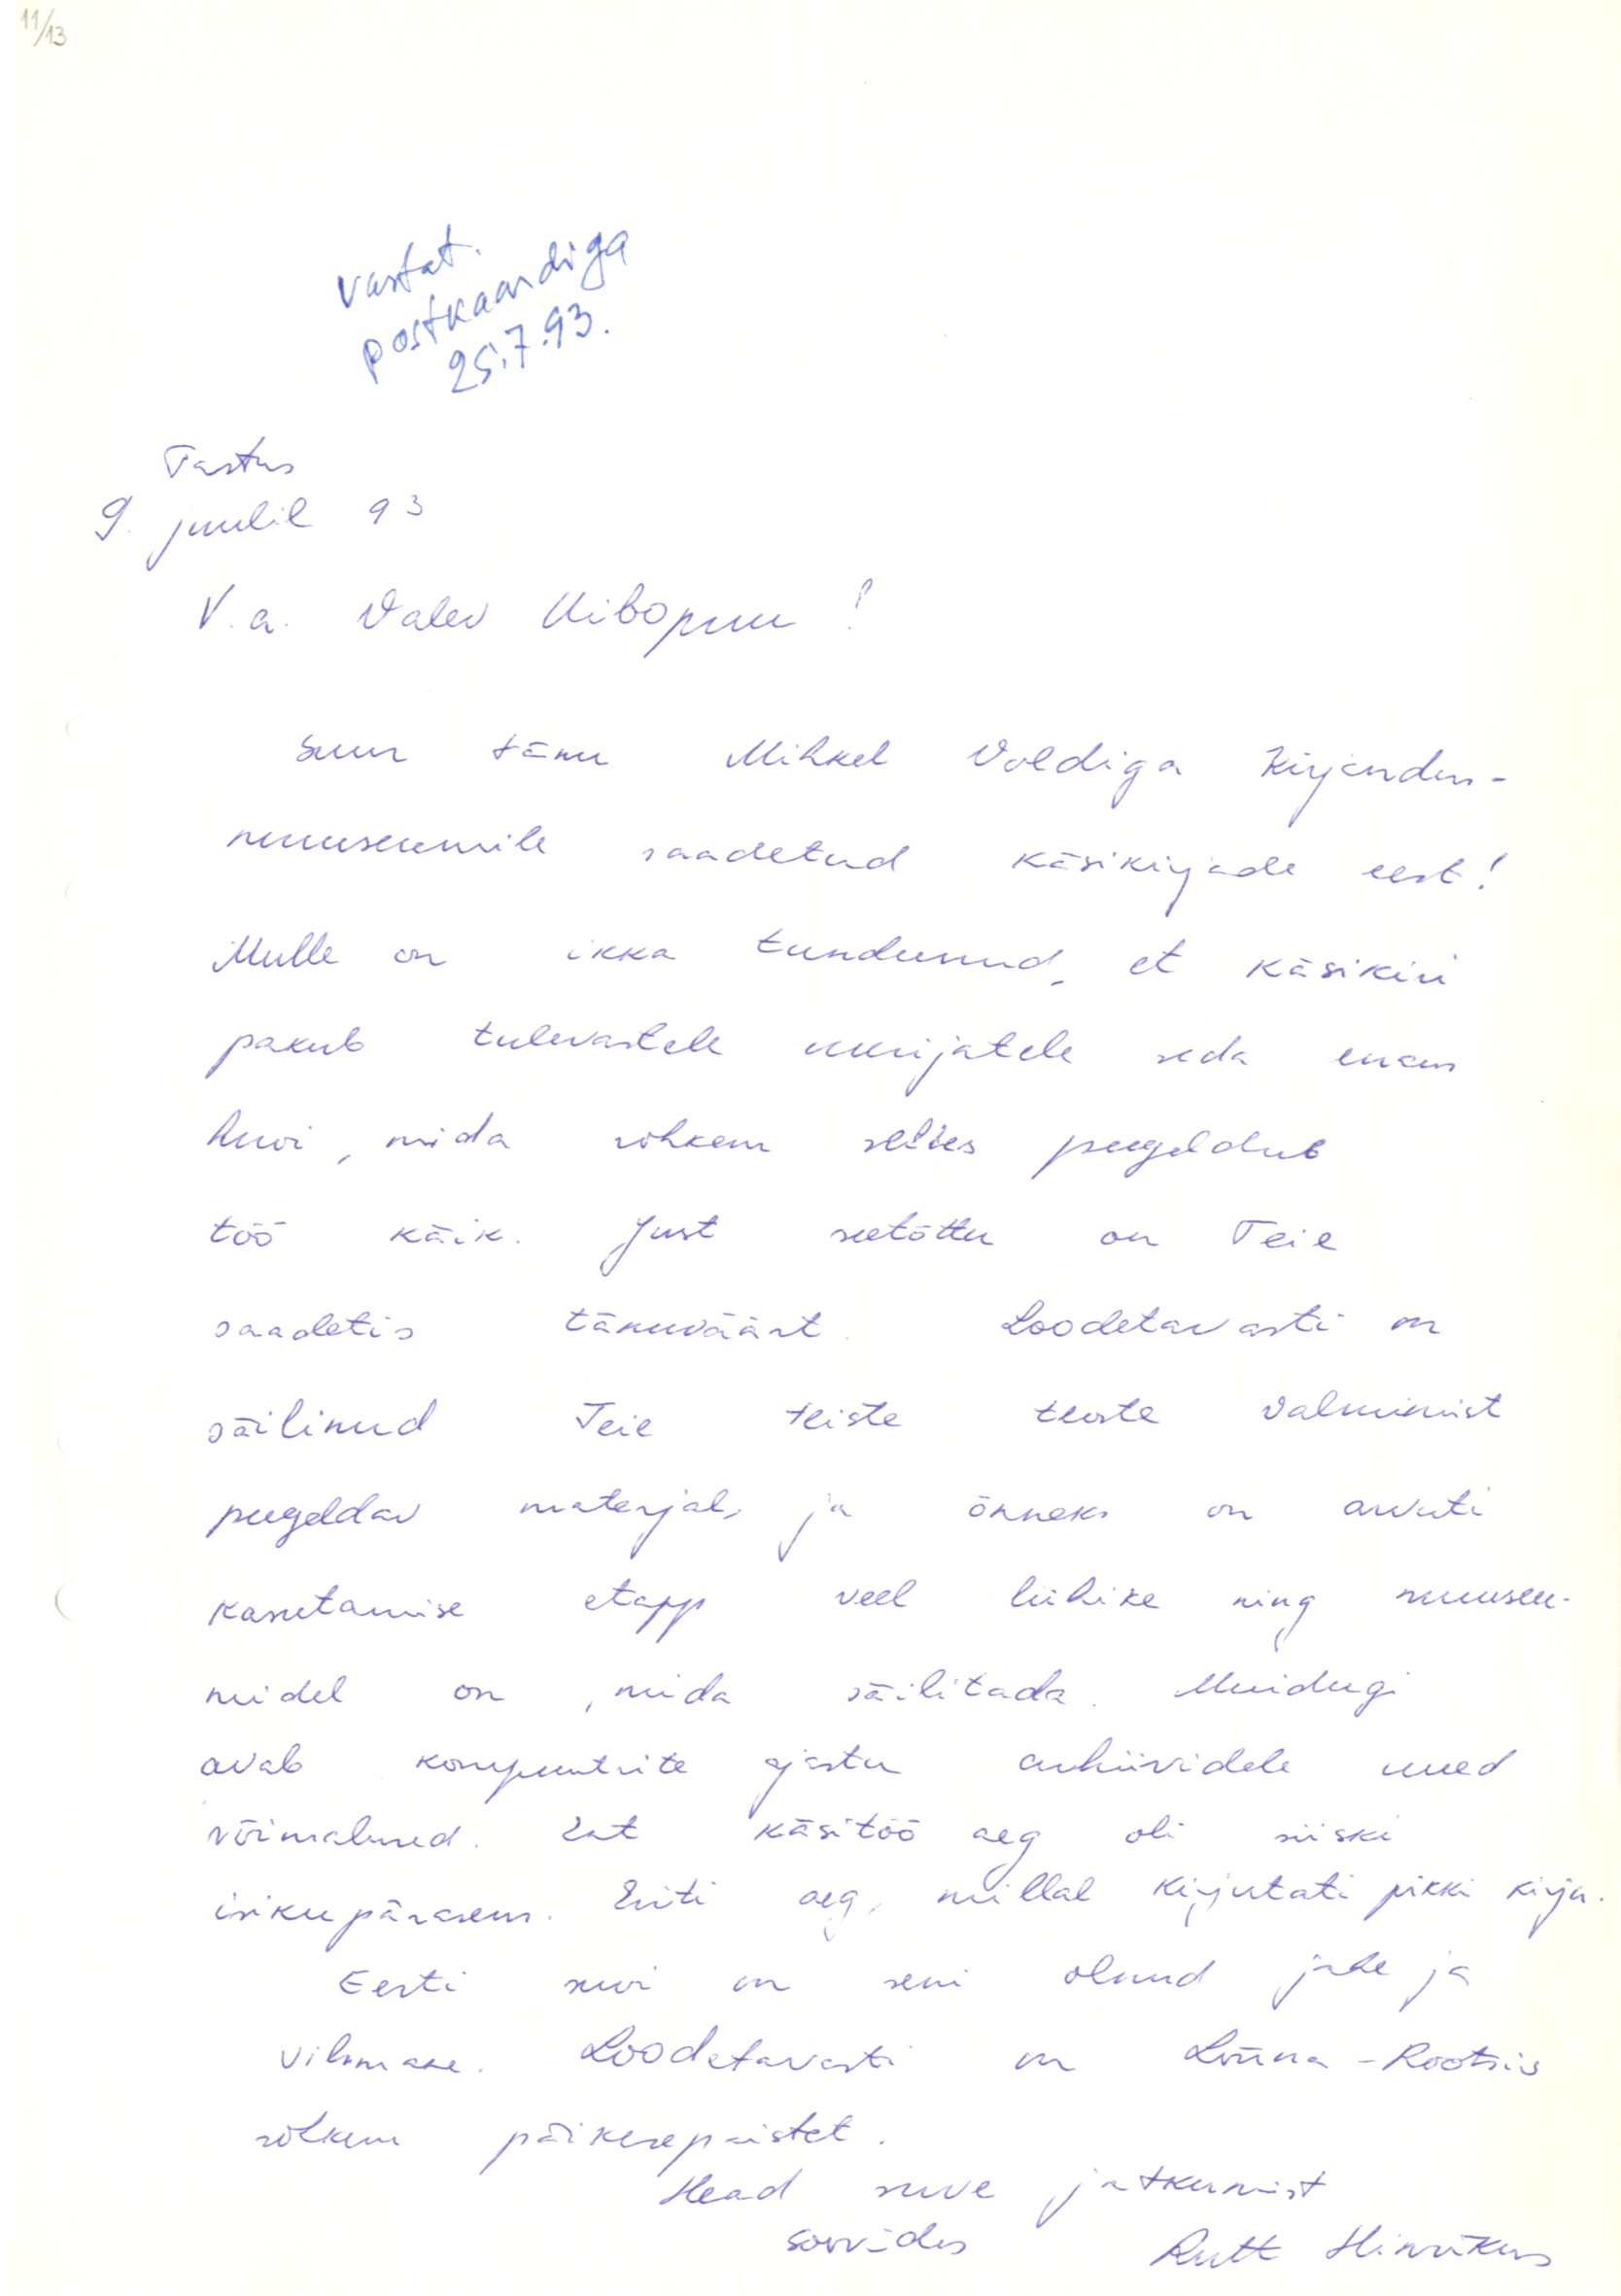 11/13
vastat.
postkaardiga
25.7.93.
Tartus
9. juulil 93
V.a. Valev Uibopuu!
Suur tänu Mihkel Voldiga Kirjandus-
muuseumile saadetud käsikirjade eest!
Mulle on ikka tundunud, et käsikiri
pakub tulevastele uurijatele seda enam
huvi, mida rohkem selles peegeldub
töö käik. Just seetõttu on Teie
saadetis tänuväärt. Loodetavasti on
säilinud Teie teiste teoste valmimist
peegeldav materjal, ja õnneks on arvuti
kasutamise etapp veel lühike ning muuseu-
midel on, mida säilitada. Muidugi
avab kompuutrite ajastu arhiividele uued
võimalused. Ent käsitöö aeg oli siiski
isikupärasem. Eriti aeg, millal kirjutati pikki kirju.
Eesti suvi on seni olnud jahe ja
vihmane. Loodetavasti on Lõuna-Rootsis
rohkem päikesepaistet.
Head suve jätkumist
soovides Rutt Hinrikus